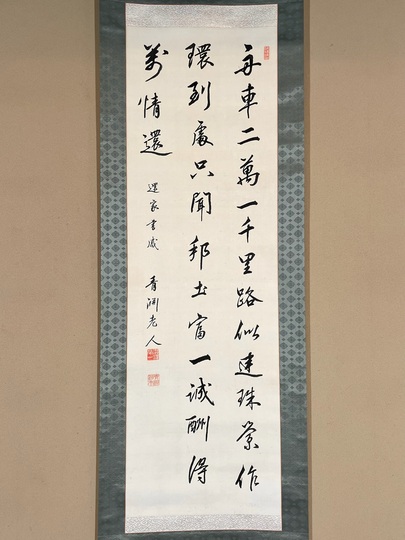 舟車二萬一千里路似連珠縈作
環到處只聞邦土富一誠酬得
萬情還
還家書感
青淵老人